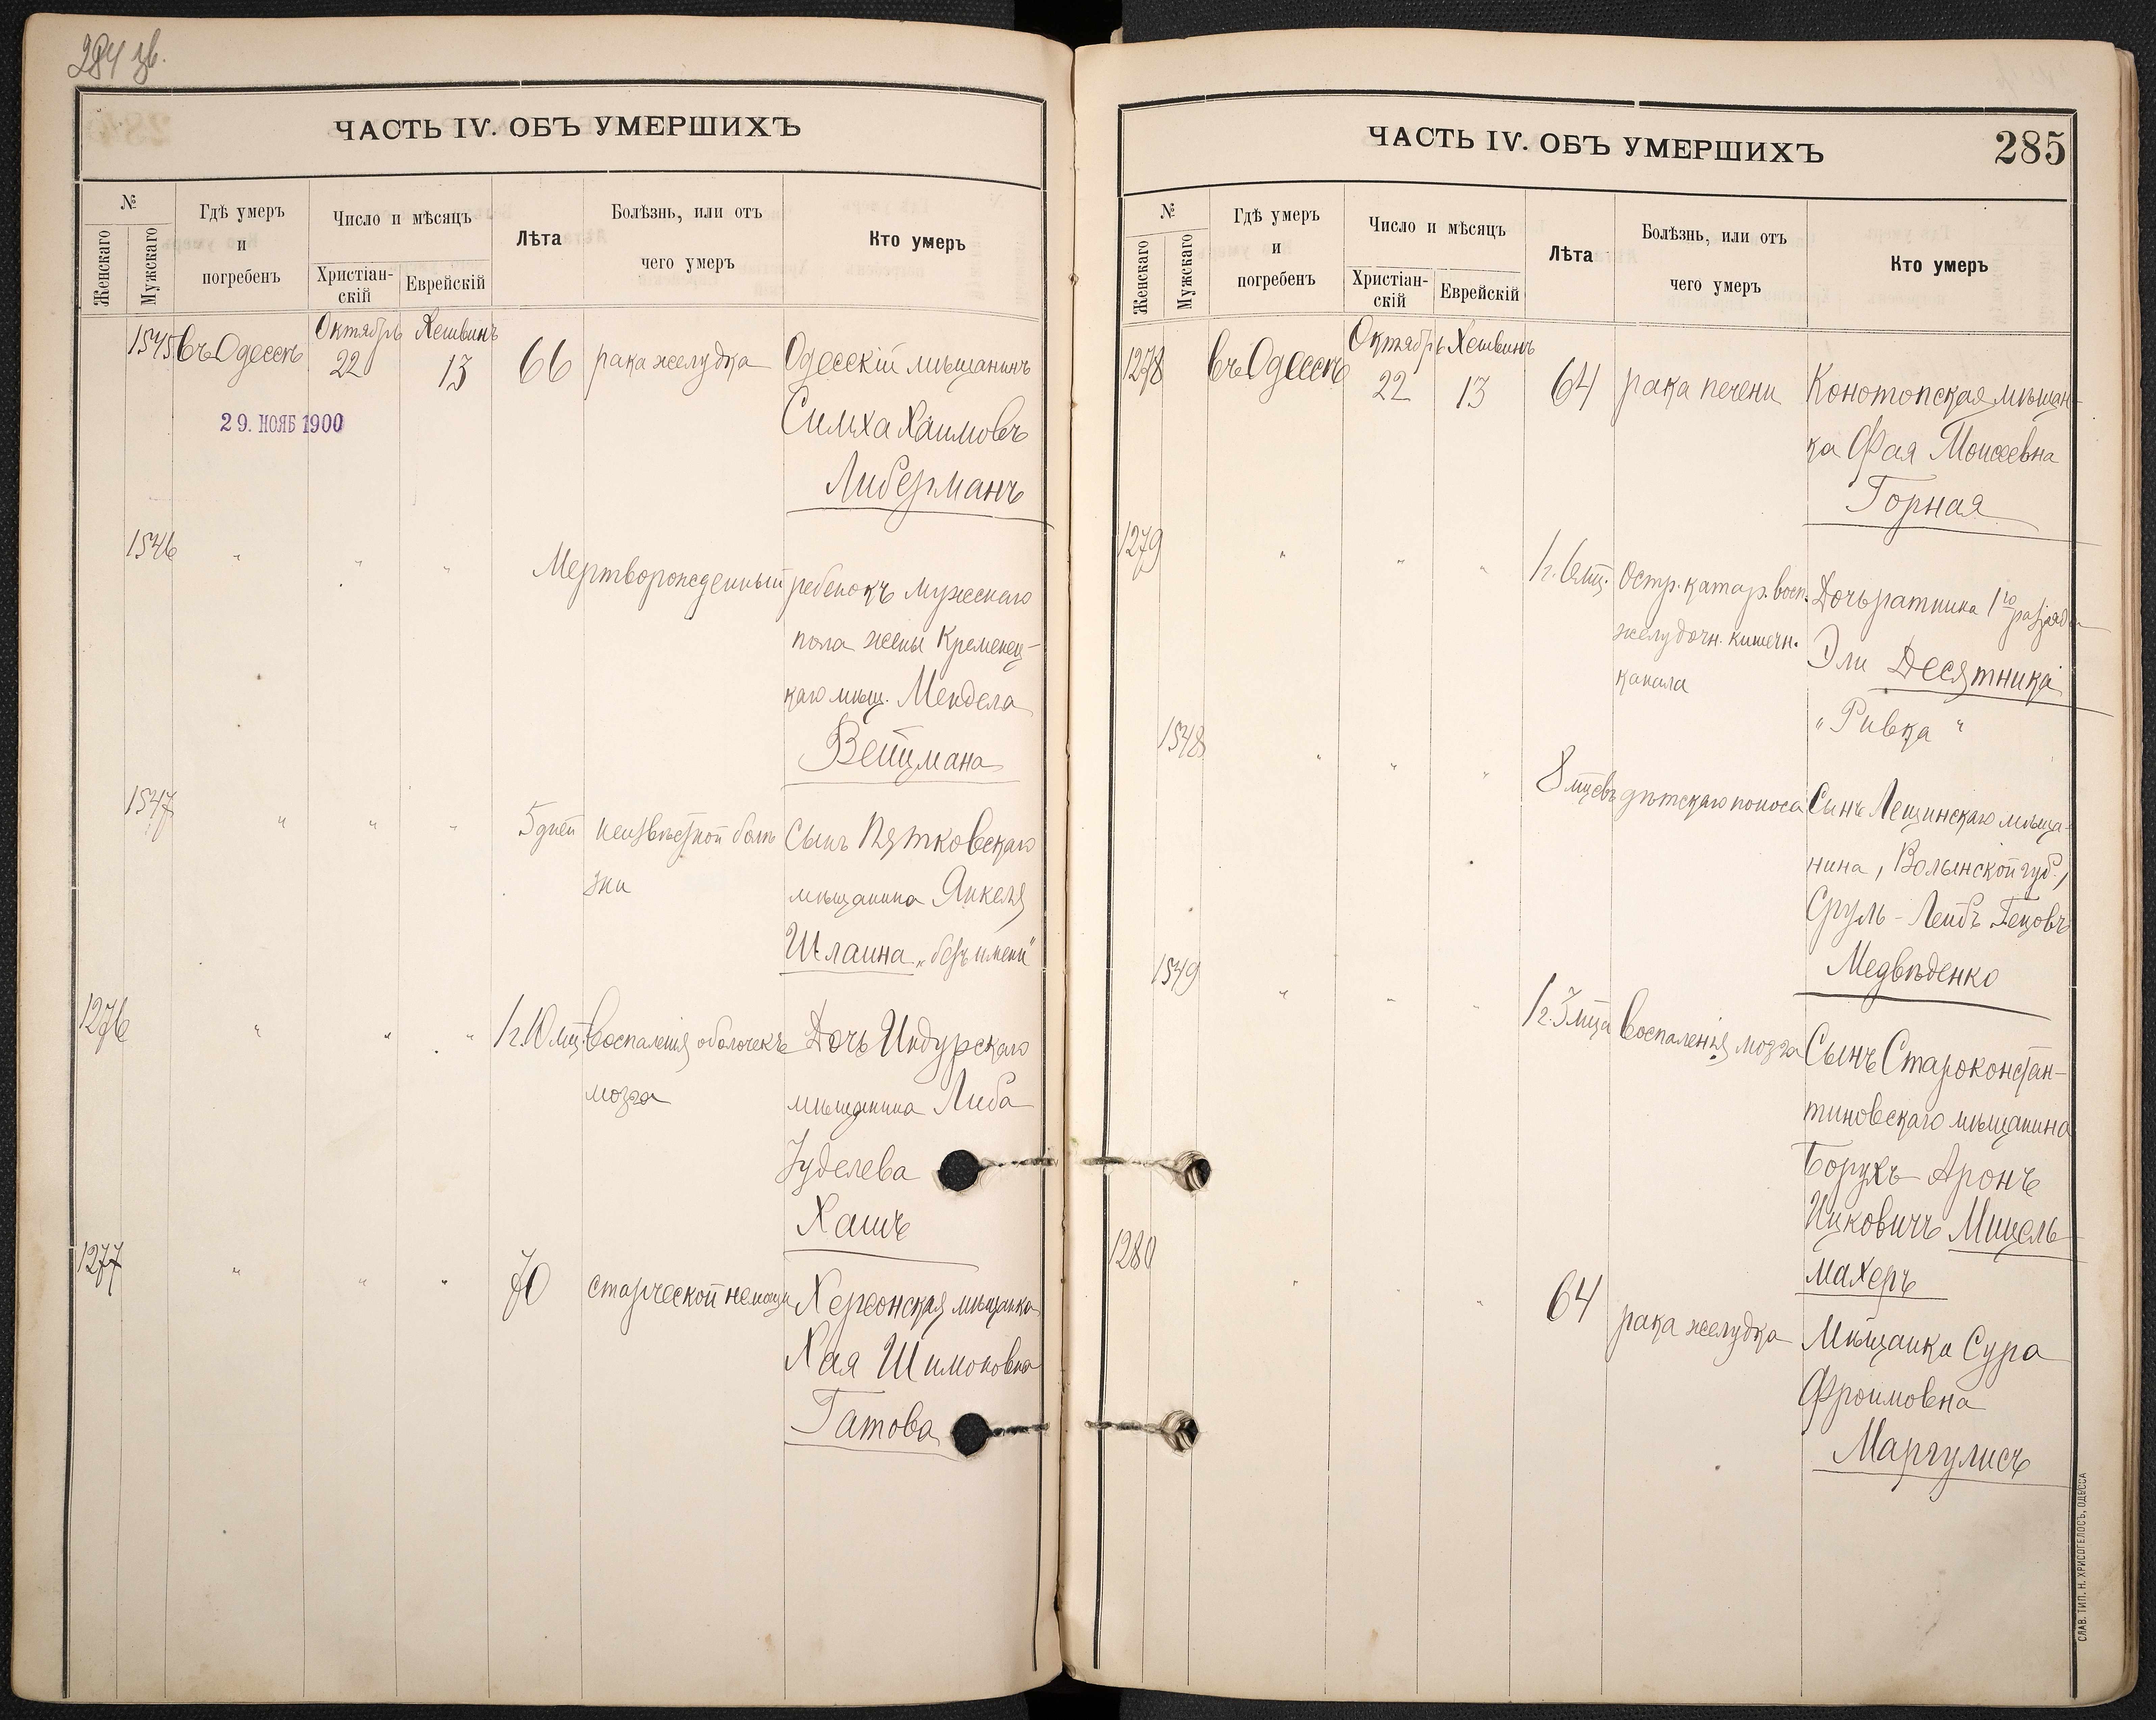 284 зв.
ЧАСТЬ IV. ОБЪ УМЕРШИХЪ
№
Женскаго
Мужскаго
Гдѣ умеръ
и
погребенъ
Число и мѣсяцъ
Христіан-
скій
Еврейскій
Лѣта
Болѣзнь, или отъ
чего умеръ
Кто умеръ
1545 въ Одессѣ Октябрь 22 Хешвинъ 13 66 рака желудка Одесскій мѣщанинъ
Симха Хаимовъ
Либерманъ
29. НОЯБ 1900
1546 " " " Мертворожденный ребенокъ мужескаго
пола жены Кременец-
каго мѣщ. Мендела
Вейцмана
1547 " " " 5 дней неизвѣстной болѣ Сынъ Пятковскаго
зни мѣщанина Янкеля
Шлаина „безъ имени"
1276 " " " 1 г. 10 мц. воспаленія оболочекъ Дочь Индурскаго
мозга мѣщанина Либа
Іуделева
Хашъ
1277 " " " 70 старческой немощи Херсонская мѣщанка
Хая Шимоновна
Гатова
ЧАСТЬ IV. ОБЪ УМЕРШИХЪ
285
№
Женскаго
Мужскаго
Гдѣ умеръ
и
погребенъ
Число и мѣсяцъ
Христіан-
скій
Еврейскій
Лѣта
Болѣзнь, или отъ
чего умеръ
Кто умеръ
1278 въ Одессѣ Октябрь 22 Хешвинъ 13 64 рака печени Конотопская мѣщан-
ка Фая Моисеевна
Горная
1279 " " " 1 г. 6 мц. Остр. катар. восп. Дочь ратника 1го разряда
желудочн. кишечн. Эли Десятника
канала „Ривка"
1548 " " " 8 мцевъ дѣтскаго поноса Сынъ Лещинскаго мѣща-
нина, Волынской губ.,
Сруль-Лейбъ Гецовъ
Медвѣденко
1549 " " " 1 г. 3 мца воспаленія мозга Сынъ Староконстан-
тиновскаго мѣщанина
Борухъ-Аронъ
Ицковичъ Мицель-
махеръ
1280 " " " 64 рака желудка Мѣщанка Сура
Фроимовна
Маргулисъ
СЛАВ. ТИП. Н. ХРИСОГЕЛОСЪ, ОДЕССА